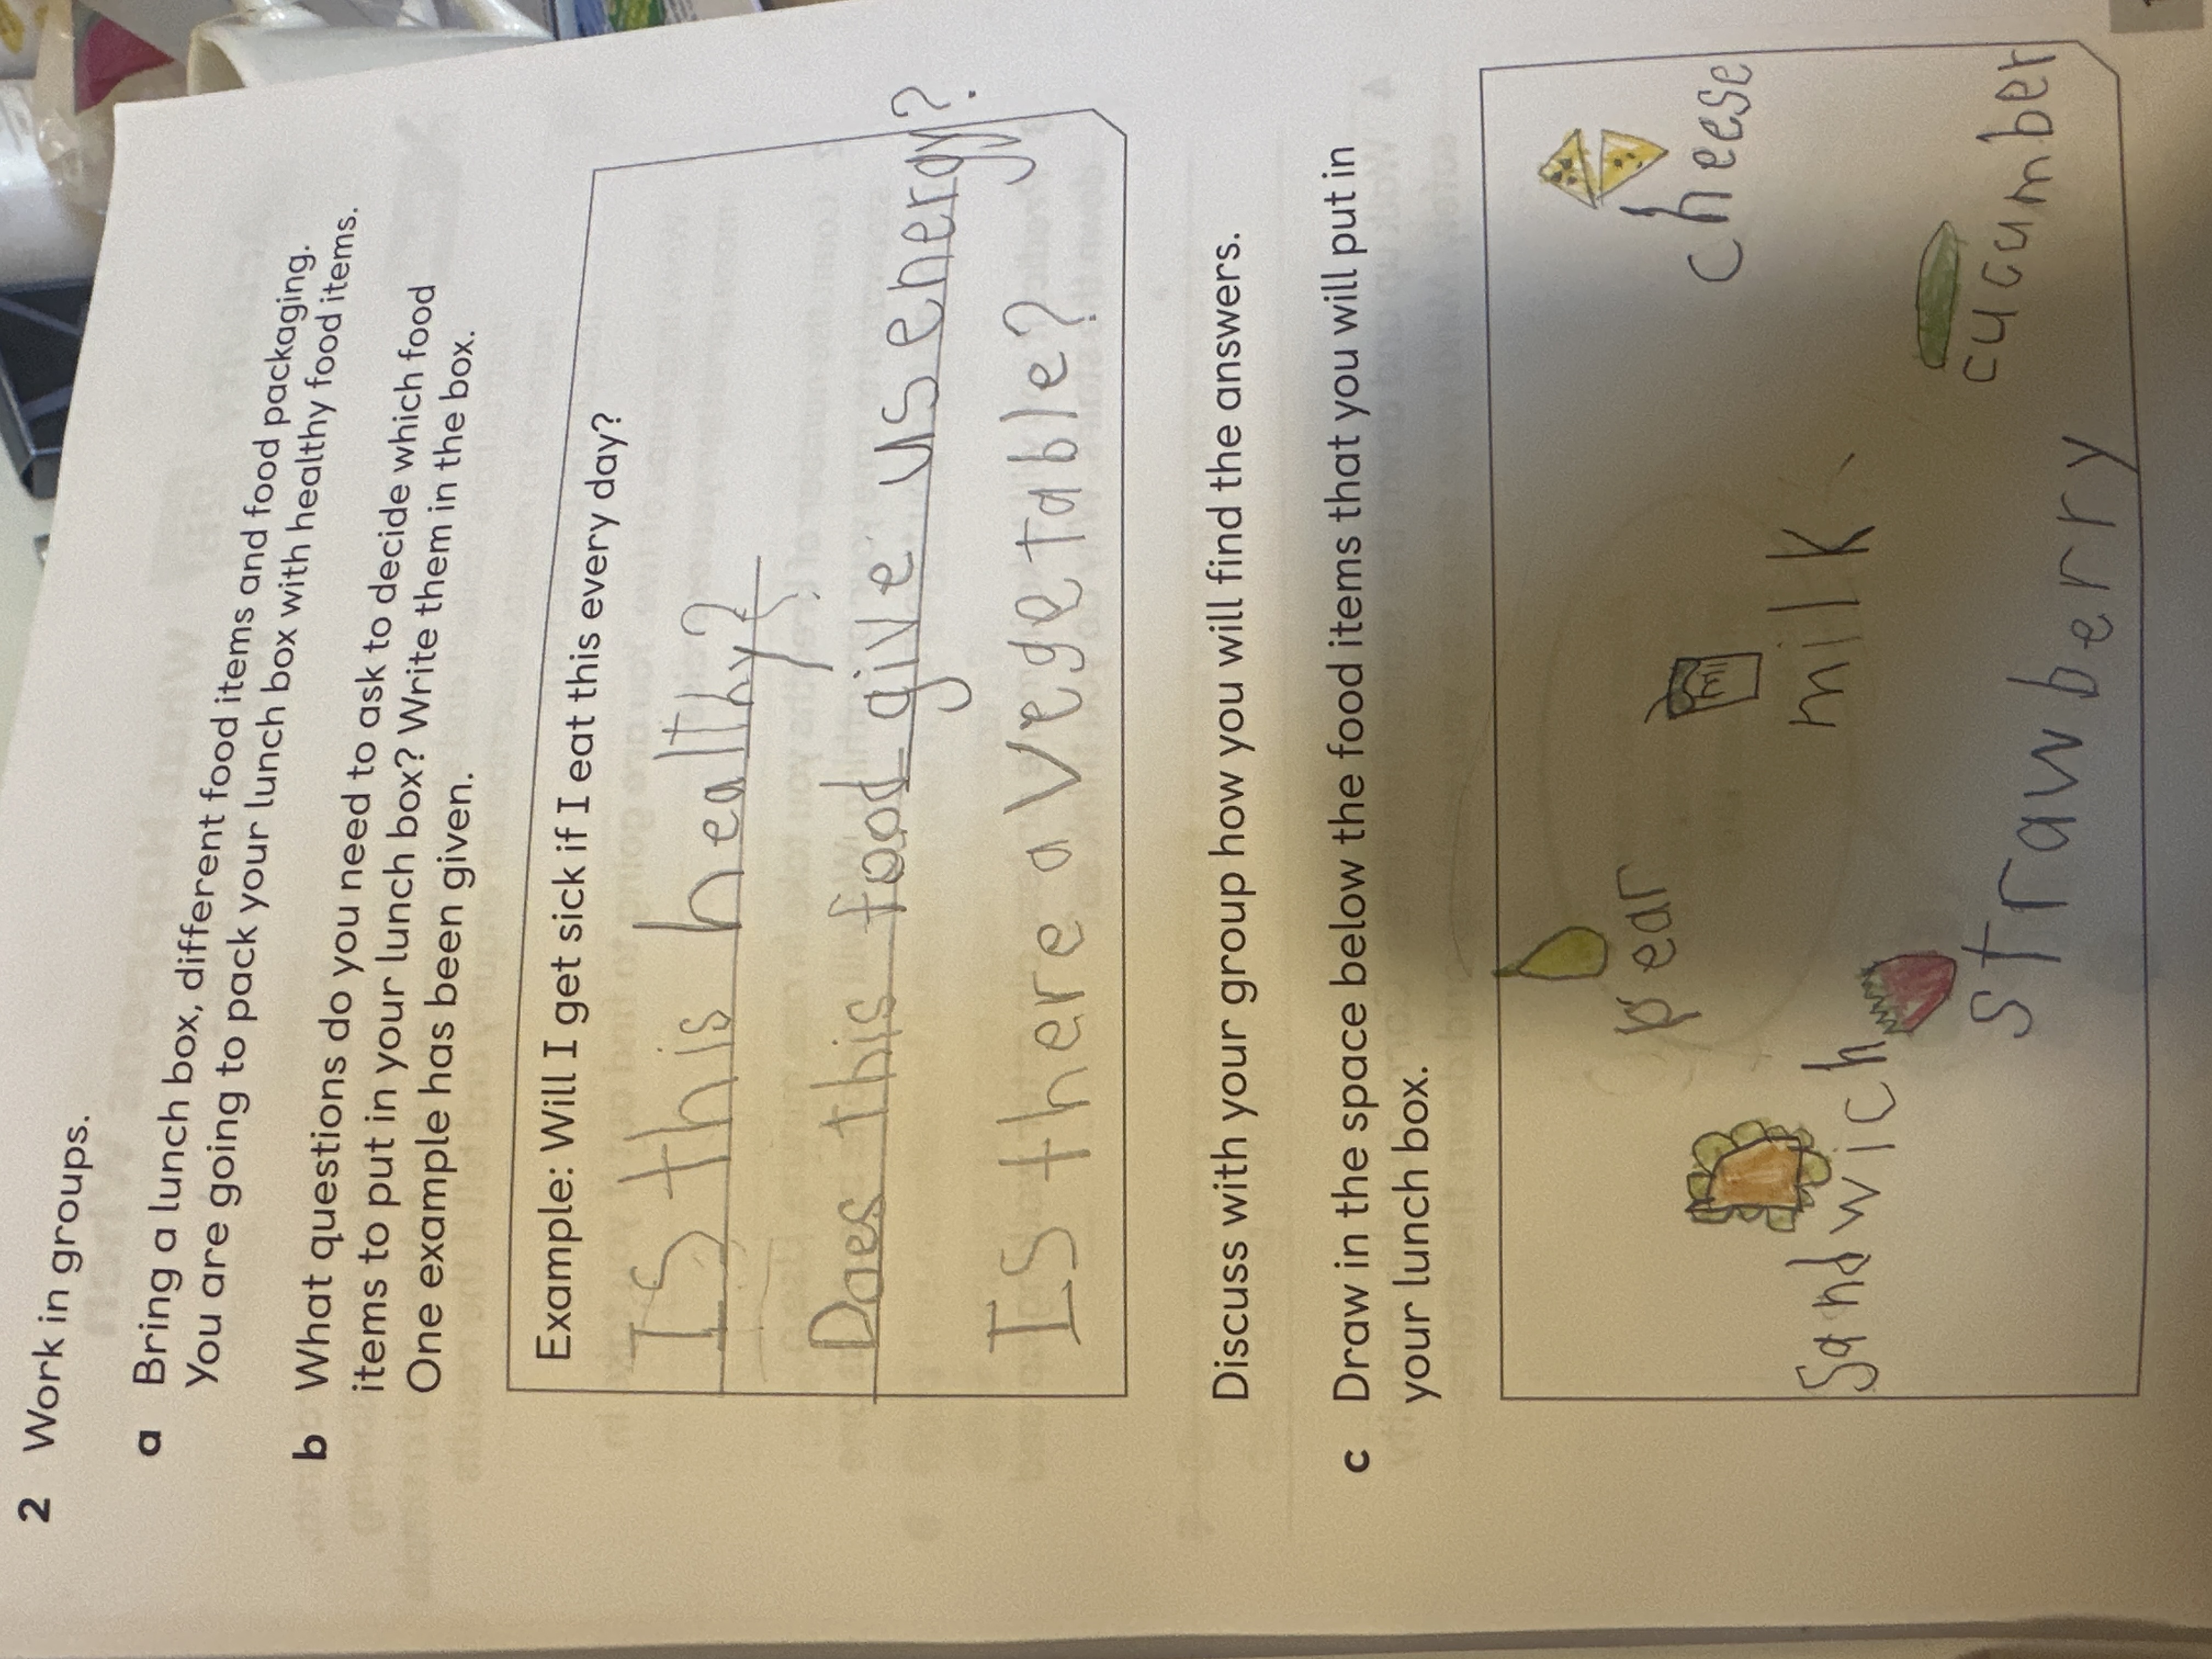 2 Work in groups.
a Bring a lunch box, different food items and food packaging.
You are going to pack your lunch box with healthy food items.
b What questions do you need to ask to decide which food
items to put in your lunch box? Write them in the box.
One example has been given.
Example: Will I get sick if I eat this every day?
Is this healthy?
Does this food give us energy?
Is there a vegetable?
Discuss with your group how you will find the answers.
c Draw in the space below the food items that you will put in
your lunch box.
pear
cheese
sandwich
milk
strawberry
cucumber